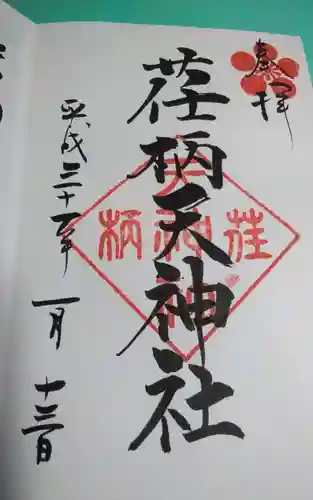 奉拝
荏柄天神社
荏 柄
天神
平成三十一年 一月 十三日